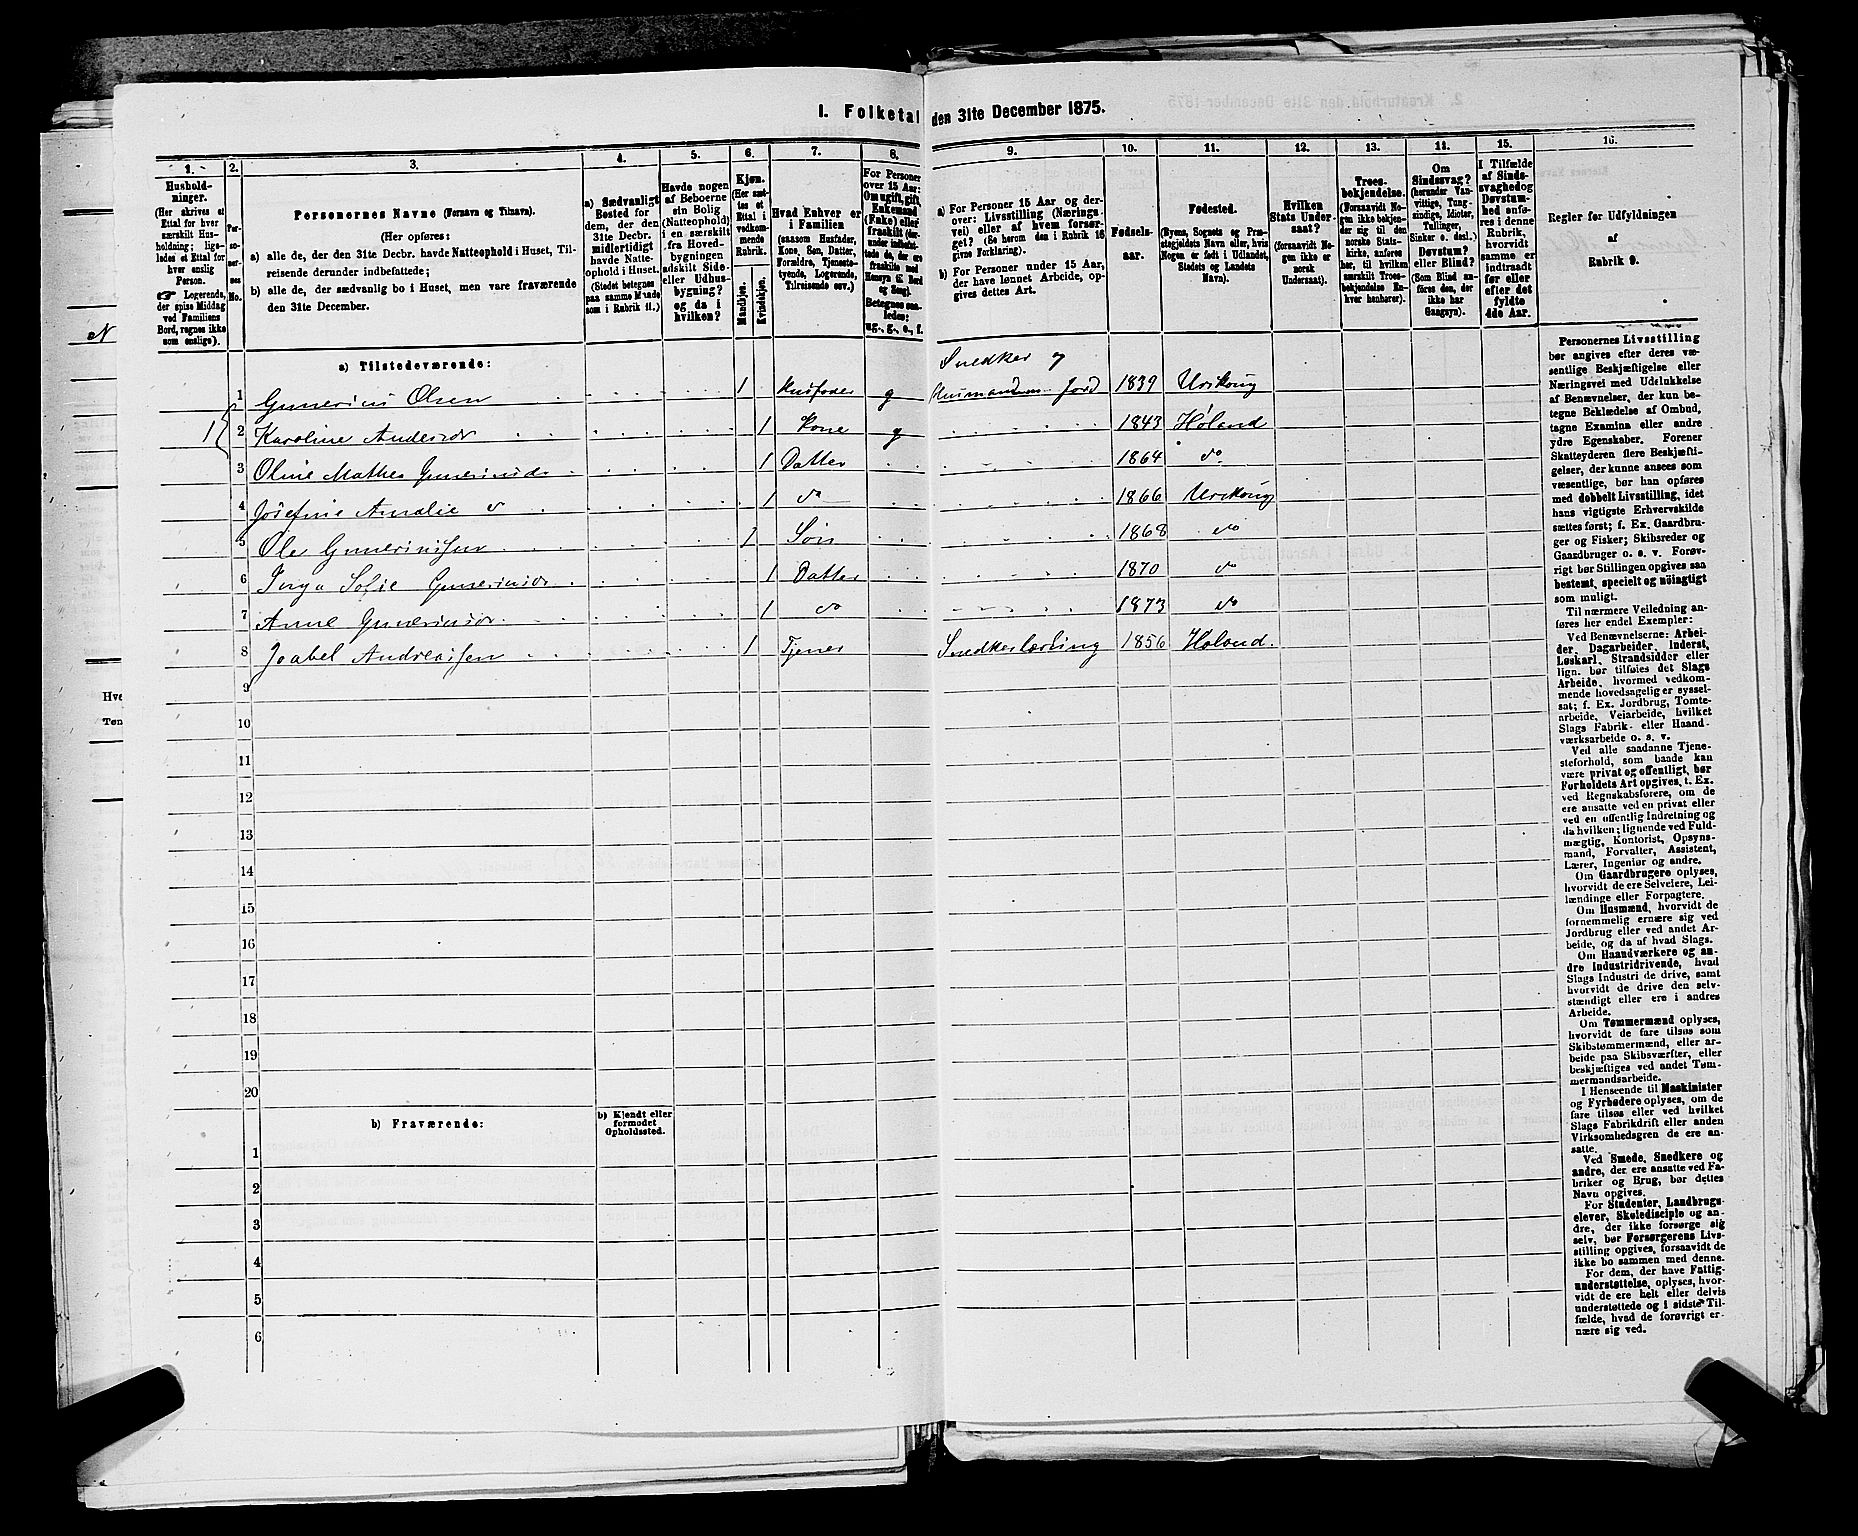 I. Folketal den 31te December 1875.
1. 2. 3. 4. 5. 6. 7. 8. 9. 10. 11. 12. 13. 14. 15. 16.
Hushold-
ninger.
(Her skrives et
Ettal for hver
særskilt Hus-
holdning; lige-
ledes et Ettal for
hver enslig
Person.
☞ Logerende,
der spise Middag
ved Familiens
Bord, regnes ikke
som enslige).
Per-
so-
ner-
nes
No.
Personernes Navne (Fornavn og Tilnavn).
(Her opføres:
a) alle de, der den 31te Decbr. havde Natteophold i Huset, Til-
reisende derunder indbefattede;
b) alle de, der sædvanlig bo i Huset, men vare fraværende
den 31te December.
a) Sædvanligt
Bosted for
dem, der den
31te Decbr.
midlertidigt
havde Natte-
ophold i Huset.
(Stedet betegnes
paa samme Maade
som i Rubrik 11.)
Havde nogen
af Beboerne
sin Bolig
(Natteophold)
i en særskilt
fra Hoved-
bygningen
adskilt Side-
eller Udhus-
bygning?
og da i
hvilken?
Kjøn.
(Her sæt-
tes et
Ettal i
vedkom-
mende
Rubrik.
Mandkjøn.
Kvindekjøn.
Hvad Enhver er
i Familien
(saasom Husfader,
Kone, Søn, Datter,
Forældre, Tjeneste-
tyende, Logerende,
Tilreisende osv.)
For Personer
over 15 Aar:
Om ugift, gift,
Enkemand
(Enke) eller
fraskilt (der-
under indbefat-
tede de, der ere
fraskilte med
Hensyn til Bord
og Seng).
Betegnes saa-
ledes:
ug., g., e., f.
a) For Personer 15 Aar og der-
over: Livsstilling (Nærings-
vei) eller af hvem forsør-
get? (Se herom den i Rubrik 16
givne Forklaring).
b) For Personer under 15 Aar,
der have lønnet Arbeide, op-
gives dettes Art.
Fødsels-
aar.
Fødested.
(Byens, Sognets og Præ-
stegjeldets Navn eller, hvis
Nogen er født i Udlandet,
Stedets og Landets
Navn).
Hvilken
Stats Under-
saat?
(forsaavidt No-
gen ikke er
norsk
Undersaat).
Troes-
bekjendelse.
(Forsaavidt No-
gen ikke bekjen-
der sig til den
norske Stats-
kirke, anføres
her, til hvilken
særskilt Troes-
bekjendelse En-
hver henhører).
Om
Sindssvag?
(herunder Van-
vittige, Tung-
sindige, Idioter,
Tullinger,
Sinker o. desl.)
Døvstum?
eller Blind?
(Som Blind an-
føres den, der
ikke har
Gangsyn).
I Tilfælde
af Sinds-
svaghed og
Døvstum-
hed anfø-
res i denne
Rubrik,
hvorvidt
samme er
indtraadt
før eller
efter det
fyldte
4de Aar.
Regler for Udfyldningen
af
Rubrik 9.
a) Tilstedeværende:
Snedker og
1 Gunerius Olsen 1 Husfader g Husmand m. Jord 1839 Urskoug
1 2 Karoline Andersdr 1 Kone g 1843 Høland
3 Oline Mathea Guneriusdr 1 Datter 1864 do
4 Josefine Amalie do 1 do 1866 Urskoug
5 Ole Gunerinssen 1 Søn 1868 do
6 Inga Sofie Guneriusdr 1 Datter 1870 do
7 Anne Guneriusdr 1 do 1873 do
8 Isabel Andreassen 1 Tjener Snedkerlærling 1856 Høland.
9
10
11
12
13
14
15
16
17
18
19
20
b) Fraværende:
b) Kjendt eller
formodet
Opholdssted.
1
2
3
4
5
6
Personernes Livsstilling
bør angives efter deres væ-
sentlige Beskjæftigelse eller
Næringsvei med Udelukkelse
af Benævnelser, der kun be-
tegne Beklædelse af Ombud,
tagne Examina eller andre
ydre Egenskaber. Forener
Skatteyderen flere Beskjæfti-
gelser, der kunne ansees som
væsentlige, bør han opføres
med dobbelt Livsstilling, idet
hans vigtigste Erhvervskilde
sættes først; f. Ex. Gaardbru-
ger og Fisker; Skibsreder og
Gaardbruger o. s. v. Forøv-
rigt bør Stillingen opgives saa
bestemt, specielt og nöiagtigt
som muligt.
Til nærmere Veiledning an-
føres her endel Exempler:
Ved Benævnelserne: Arbei-
der, Dagarbeider, Inderst,
Løskarl, Strandsidder eller
lign. bør tilføies det Slags
Arbeide, hvormed vedkom-
mende hovedsagelig er syssel-
sat; f. Ex. Jordbrug, Tomte-
arbeide, Veiarbeide, hvilket
Slags Fabrik- eller Haand-
værksarbeide o. s. v.
Ved alle saadanne Tjene-
steforhold, som baade kan
være privat og offentligt, bør
Forholdets Art opgives, t. Ex.
ved Regnskabsførere, om de
ere ansatte ved en privat eller
ved en offentlig Indretning og
da hvilken; lignende ved Fuld-
mægtig, Kontorist, Opsyns-
mand, Forvalter, Assistent,
Lærer, Ingeniør og andre.
Om Gaardbrugere oplyses,
hvorvidt de ere Selveiere, Lei-
lændinge eller Forpagtere.
Om Husmænd, hvorvidt de
fornemmelig ernære sig ved
Jordbrug eller ved andet Ar-
beide, og da af hvad Slags.
Om Haandværkere og an-
dre Industridrivende, hvad
Slags Industri de drive, samt
hvorvidt de drive den selv-
stændigt eller ere i andres
Arbeide.
Om Tømmermænd oplyses,
hvorvidt de fare tilsøs som
Skibstømmermænd, eller ar-
beide paa Skibsværfter, eller
beskjæftiges ved andet Tøm-
mermandsarbeide.
I Henseende til Maskinister
og Fyrbødere oplyses, om de
fare tilsøs eller ved hvilket
Slags Fabrikdrift eller anden
Virksomhedsgren de ere an-
satte.
Ved Smede, Snedkere og
andre, der ere ansatte ved Fa-
briker og Brug, bør dettes
Navn opgives.
For Studenter, Landbrugs-
elever, Skoledisciple og an-
dre, der ikke forsørge sig
selv, bør Forsørgerens Livs-
stilling opgives, forsaavidt de
ikke bo sammen med denne.
For dem, der have Fattig-
understøttelse, oplyses, hvor-
vidt de ere helt eller delvis
understøttede og i sidste Til-
fælde, hvad de forøvrigt er-
nære sig ved.